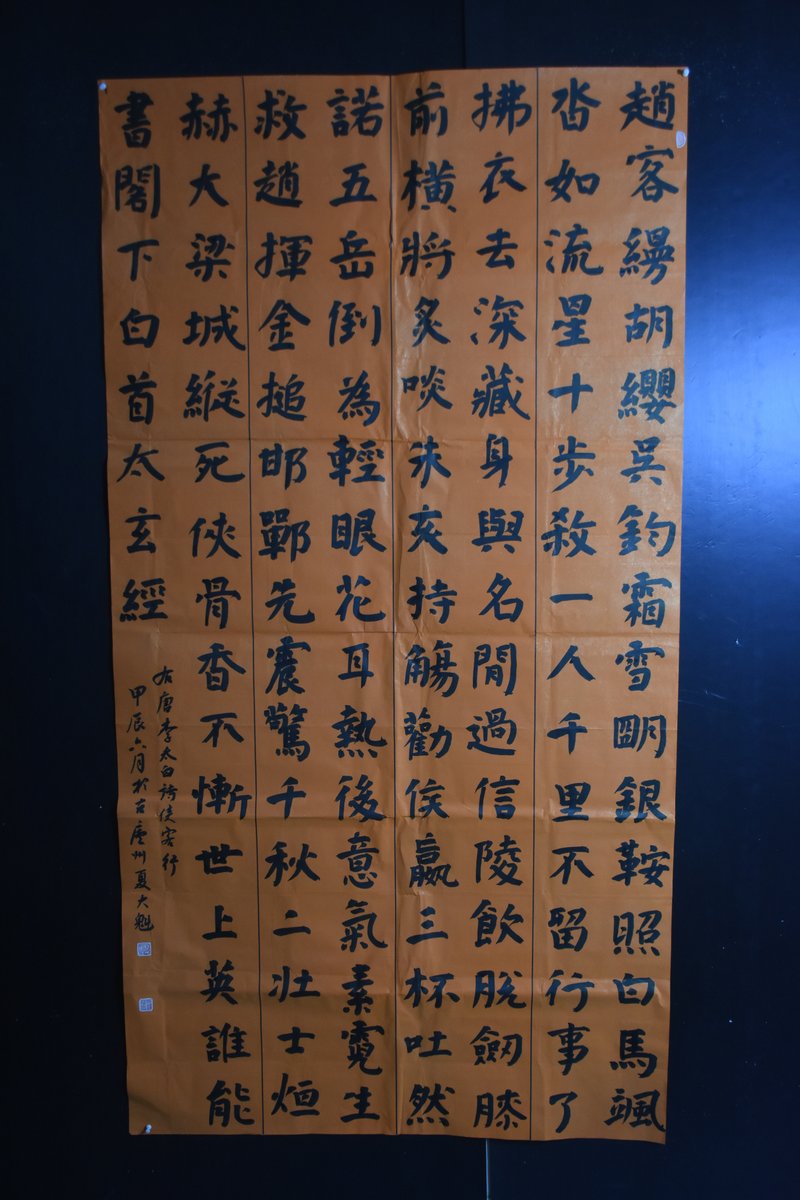 趙客縵胡纓吳鉤霜雪朙銀鞍照白馬颯
沓如流星十步殺一人千里不留行事了
拂衣去深藏身與名閒過信陵飲脫劒膝
前橫將炙啖朱亥持觴勸侯嬴三杯吐然
諾五岳倒為輕眼花耳熱後意氣素霓生
救趙揮金搥邯鄲先震驚千秋二壯士烜
赫大梁城縱死俠骨香不慚世上英誰能
書閣下白首太玄經
右唐李太白詩俠客行
甲辰六月於古廬州夏大魁